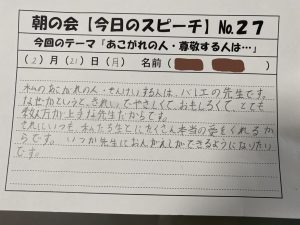 朝の会【今日のスピーチ】No.27
今回のテーマ「あこがれの人・尊敬する人は…」
(2)月(21)日(月) 名前( )
私のあこがれの人・せんけいする人は、バレエの先生です。
なぜかというと、きれいで、やさしくて、おもしろくて、とても
教え方が上手な先生だからです。
それにいつも、私たち生とにたくさん本当の愛をくれるか
らです。いつか先生におんがえしができるようになりたい
です。